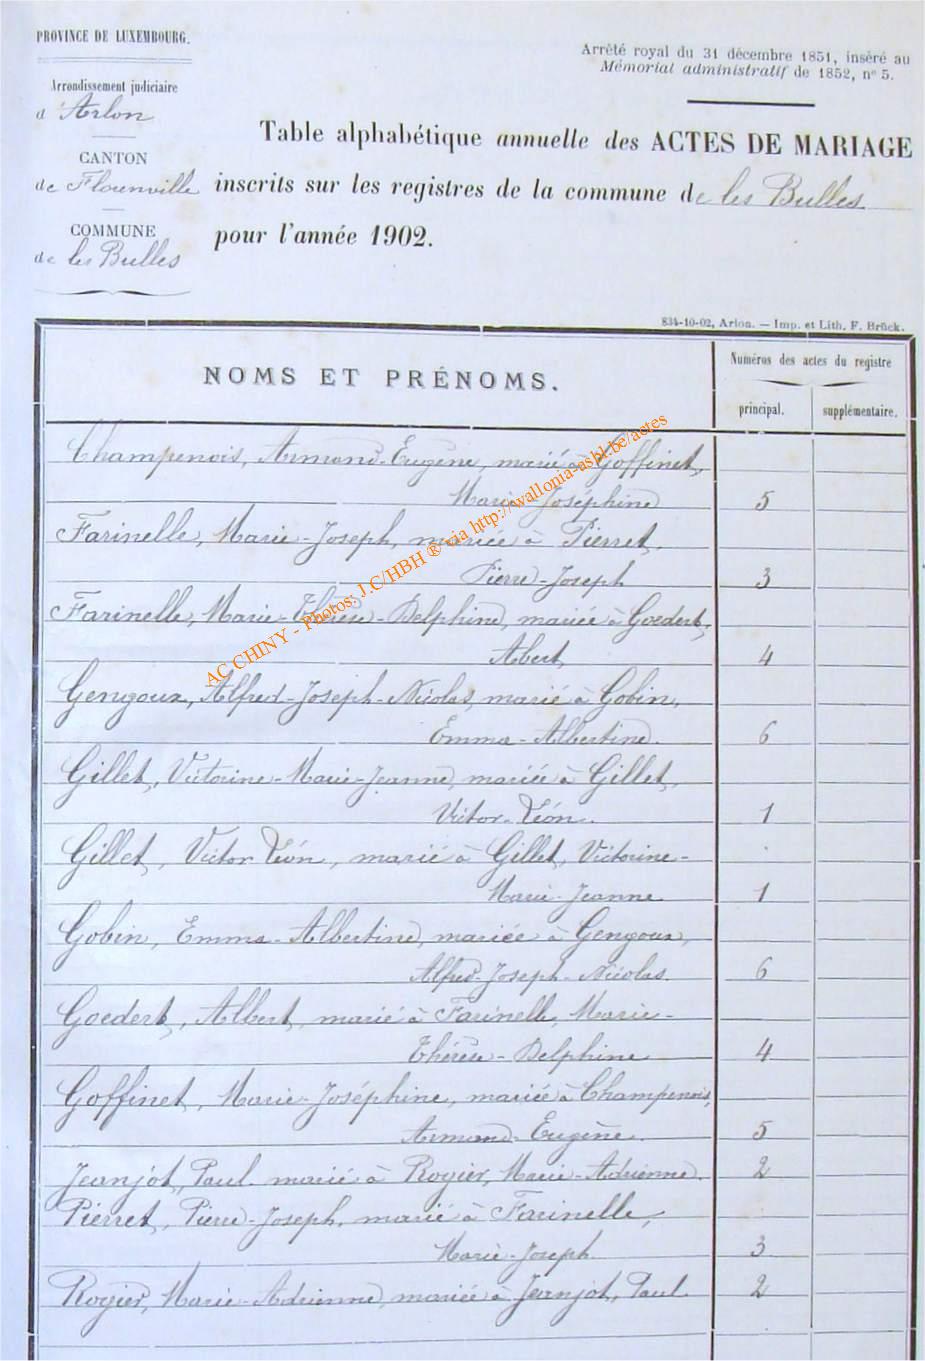 PROVINCE DE LUXEMBOURG.
Arrondissement judiciaire
d'Arlon
CANTON
de Florenville
COMMUNE
de les Bulles
Arrêté royal du 31 décembre 1851, inséré au
Mémorial administratif de 1852, n° 5.
Table alphabétique annuelle des ACTES DE MARIAGE
inscrits sur les registres de la commune de les Bulles
pour l'année 1902.
834-10-02, Arlon. — Imp. et Lith. F. Brück.
NOMS ET PRÉNOMS.
Numéros des actes du registre
principal. supplémentaire.
Champenois, Armand-Eugène, marié à Goffinet,
Marie-Joséphine 5
Farinelle, Marie-Joseph, mariée à Pierret,
Pierre-Joseph 3
Farinelle, Marie-Thérèse-Delphine, mariée à Goedert,
Abert 4
Gengoux, Alfred-Joseph-Nicolas, marié à Gobin,
Emma-Albertine. 6
Gillet, Victorine-Marie-Jeanne, mariée à Gillet,
Victor-Léon. 1
Gillet, Victor Léon, marié à Gillet, Victorine-
Marie-Jeanne 1
Gobin, Emma-Albertine, mariée à Gengoux,
Alfred-Joseph-Nicolas. 6
Goedert, Albert, marié à Farinelle, Marie-
Thérèse-Delphine 4
Goffinet, Marie-Joséphine, mariée à Champenois,
Armand-Eugène. 5
Jeanjot, Paul. marié à Rogier, Marie-Adrienne. 2
Pierret, Pierre-Joseph, marié à Farinelle,
Marie-Joseph. 3
Rogier, Marie-Adrienne, mariée à Jeanjot, Paul. 2
AC CHINY - Photos: J.C/HBH ® via http://wallonia-asbl.be/actes